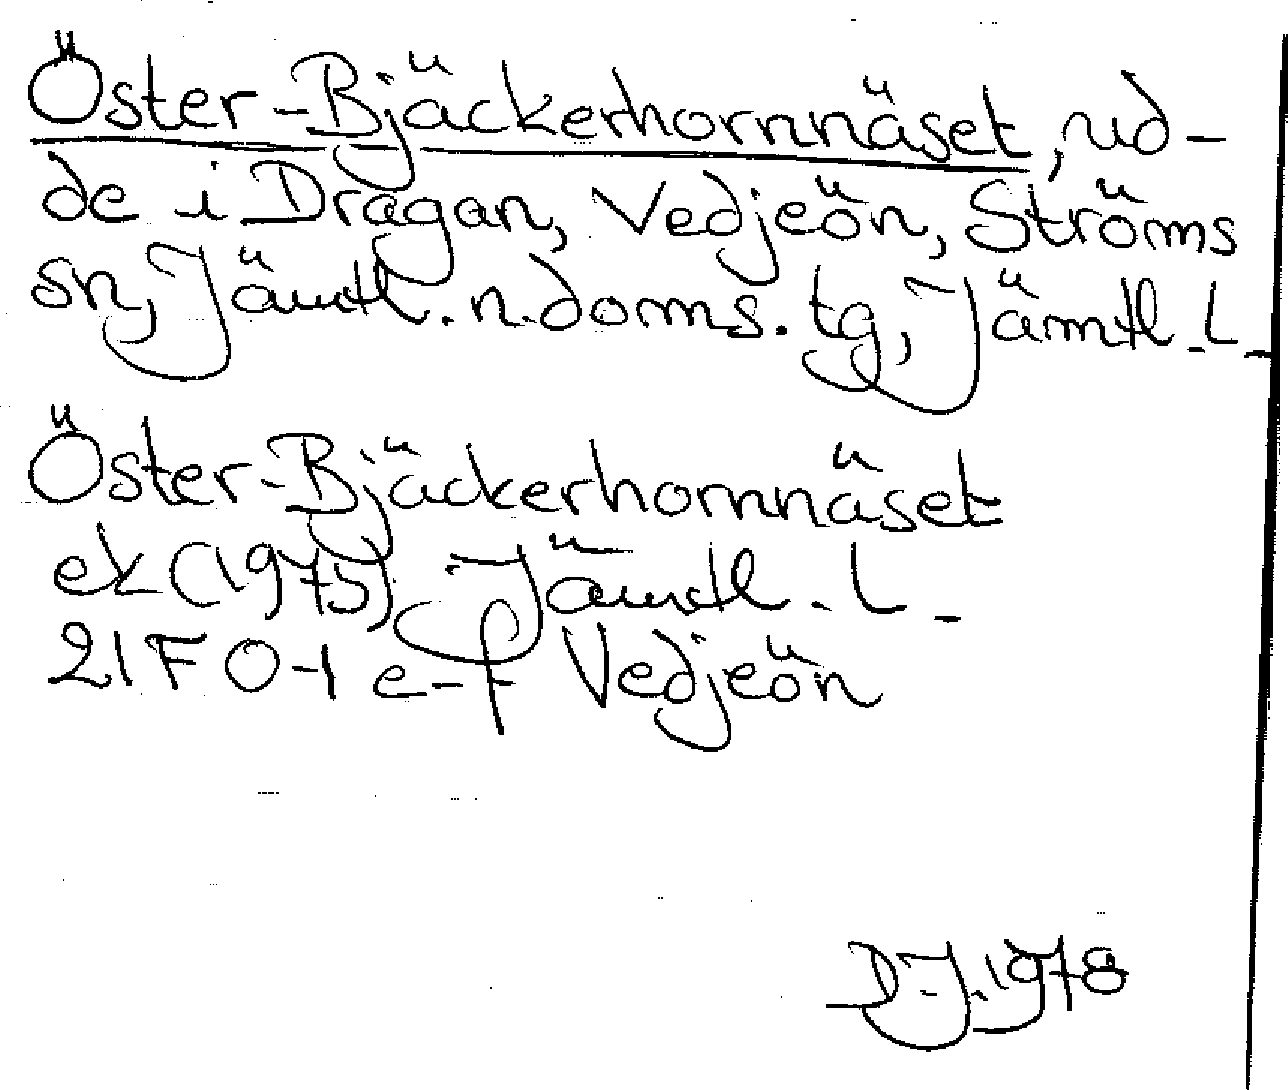 Öster-Bjäckerhornnäset, ud-
de i Dragan, Vedjeön, Ströms
sn, Jämtl. n. doms. tg, Jämtl. L.
Öster-Bjäckerhornnäset
ek (1975) Jämtl. L.
21F 0-1 e-f Vedjeön
D.J. 1978